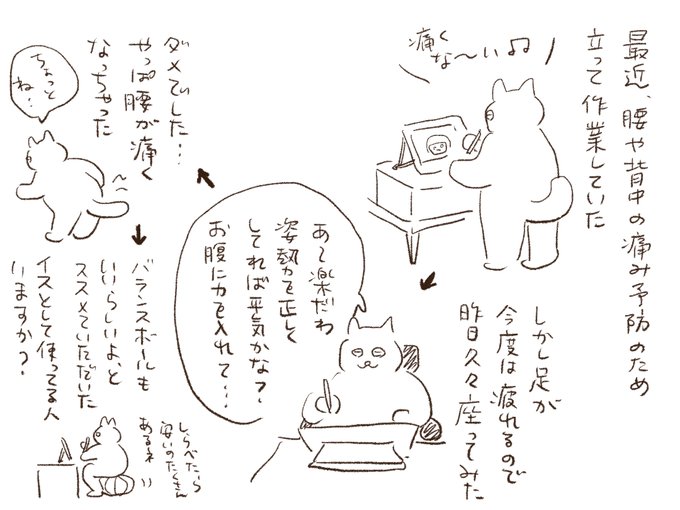 最近、腰や背中の痛み予防のため
立って作業していた
痛く
な〜い♫
しかし足が
今度は疲れるので
昨日久々座ってみた
あ〜楽だわ
姿勢を正しく
してれば平気かな？
お腹に力を入れて…
ダメでした…
やっぱ腰が痛く
なっちゃった
ちょっと
ね！
バランスボールも
いいらしいよ、と
ススメていただいた
イスとして使ってる人
いますか？
しらべたら
安いのたくさん
あるネ